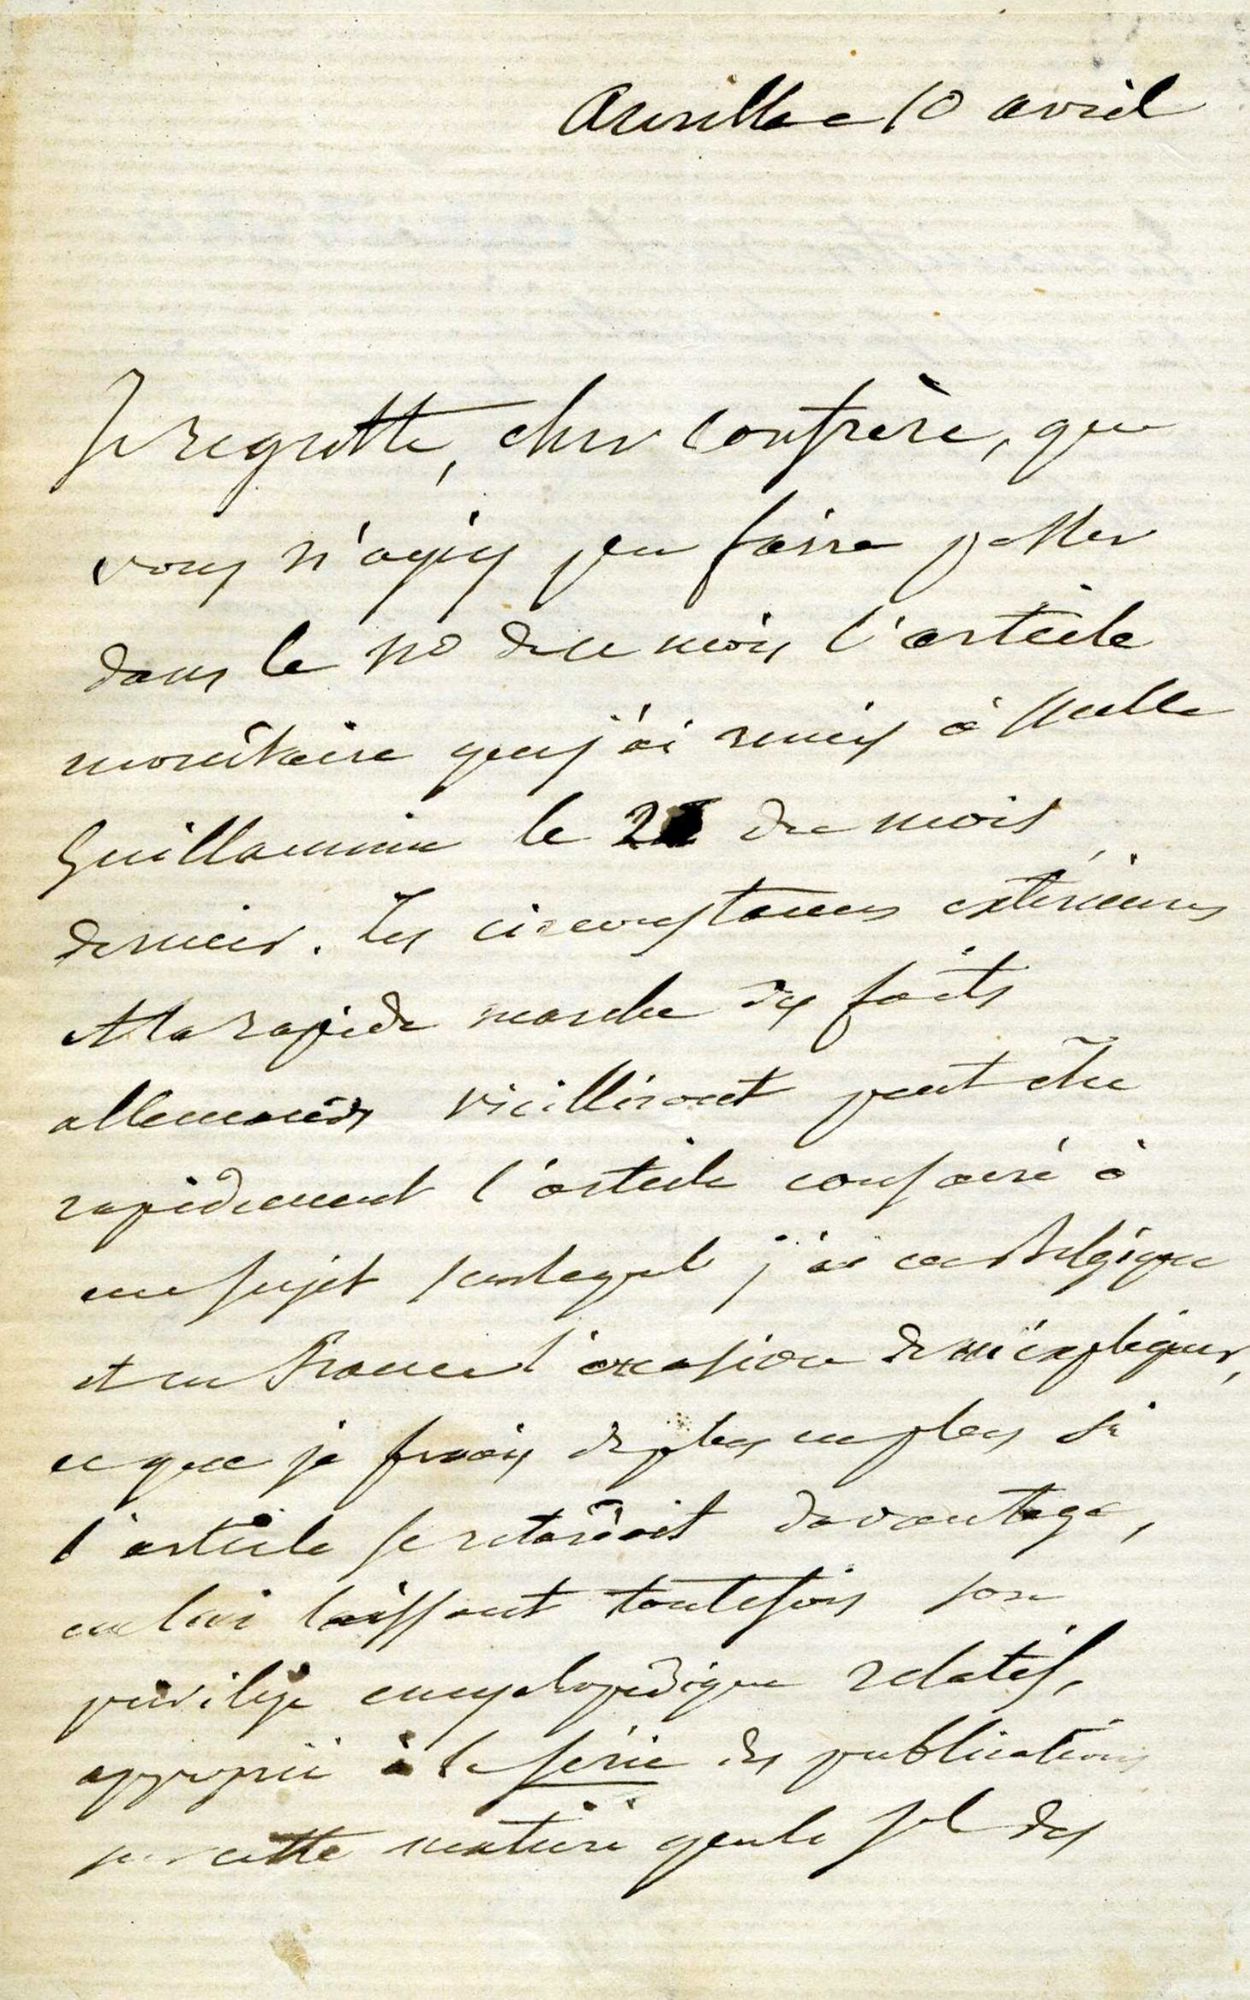 Aurillac 10 avril
Je regrette, cher confrère, que
vous n'ayiez peu faire passer
dans le no de ce mois l'article
monétaire que j'ai remis à Melle
Guillaumin le 2 du mois
dernier. Les circonstances extérieures
et la rapide marche des faits
allemands vieilliront peut être
rapidement l'article consacré à
un sujet sur lequel j'ai en Belgique
et en France l'occasion de m'expliquer,
ce que je ferais de plus en plus si
l'article se retardait davantage,
en lui laissant toutefois son
privilège encyclopédique relatif,
approprié à la série des publications
sur cette matière que le Jal des